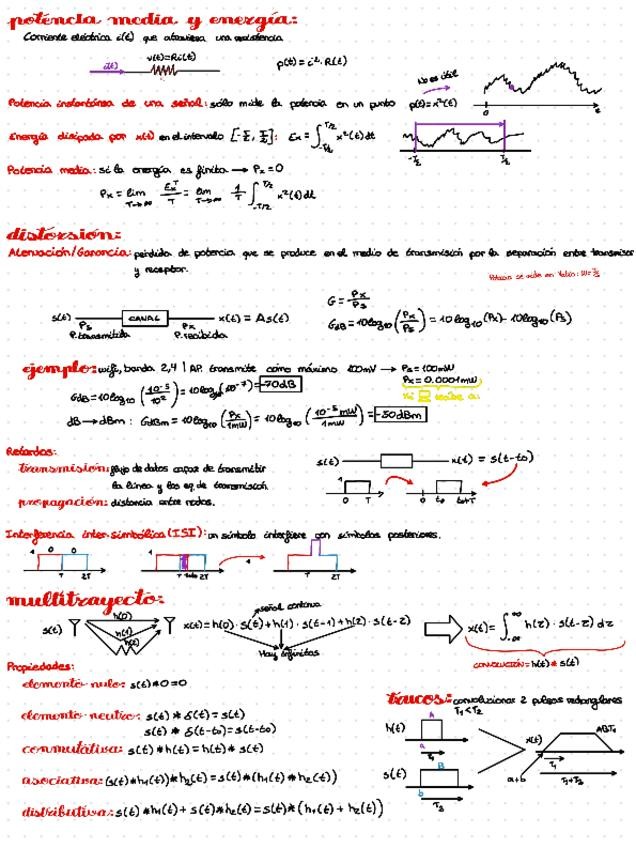 potencia media y energía:
Corriente eléctrica i(t) que atraviesa una resistencia
i(t) v(t)=Ri(t) p(t)=i²·R(t)
No es útil
Potencia instantánea de una señal: sólo mide la potencia en un punto p(t)=x²(t)
0 t
Energía disipada por x(t) en el intervalo [-T/2, T/2]: Ex=∫_{-T/2}^{T/2} x²(t)dt
-T/2 T/2
Potencia media: si la energía es finita → Px=0
Px = lim_{T→∞} Ex^T/T = lim_{T→∞} 1/T ∫_{-T/2}^{T/2} x²(t)dt
distorsion:
Atenuación/Ganancia: pérdida de potencia que se produce en el medio de transmisión por la separación entre transmisor
y receptor.
G = Px/Ps
s(t) CANAL x(t) = As(t)
Ps Px
P.transmitida P.recibida
GdB = 10log10(Px/Ps) = 10log10(Px)-10log10(Ps)
ejemplo: wifi, banda 2,4 | AP. transmite como máximo 100mW → Ps=100mW
Px=0.0001mW
GdB=10log10(10^-5/10^2) = 10log10(10^-7)=-70dB
dB → dBm: GdBm = 10log10(Px/1mW) = 10log10(10^-5mW/1mW) = -50dBm
Retardos:
transmision: flujo de datos capaz de transmitir
la línea y los eq. de transmisión.
propagacion: distancia entre nodos.
s(t) x(t) = s(t-t0)
1 0 T 0 t0 t0+T
Interferencia inter-simbólica (ISI): un símbolo interfiere con símbolos posteriores.
1 0 0
T 2T T 2T T 2T
multitrayecto:
señal continua
s(t) h(0) h(1) h(2) x(t)=h(0)·s(t)+h(1)·s(t-1)+h(2)·s(t-2)
Hay infinitas
x(t)=∫_{-∞}^{∞} h(z)·s(t-z)dz
CONVOLUCIÓN = h(t)*s(t)
Propiedades:
elemento nulo: s(t)*0=0
elemento neutro: s(t)*δ(t)=s(t)
s(t)*δ(t-t0)=s(t-t0)
conmutativa: s(t)*h(t)=h(t)*s(t)
asociativa: (s(t)*h1(t))*h2(t)=s(t)*(h1(t)*h2(t))
distributiva: s(t)*h1(t)+s(t)*h2(t)=s(t)*(h1(t)+h2(t))
trucos: convolucionar 2 pulsos rectangulares
T1<T2
h(t) A a T1
s(t) B b T2
x(t) ABT1
T1
a+b T1+T2